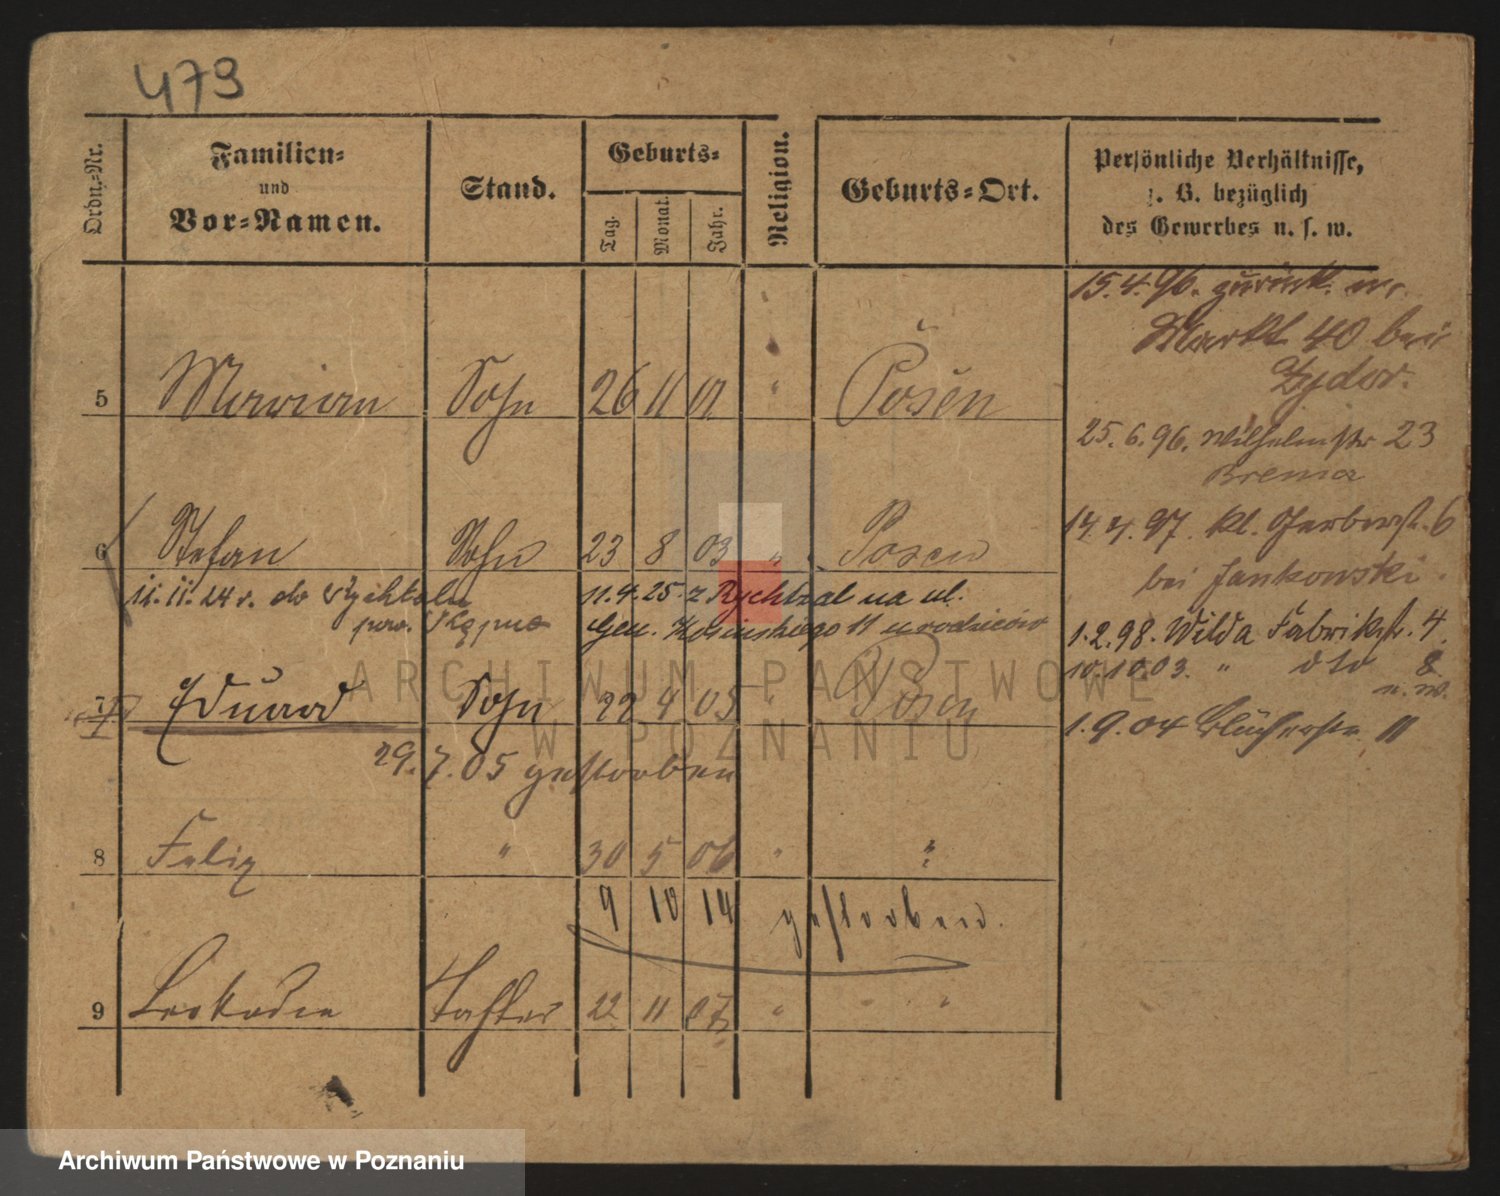 479
Ordn.-Nr.
Familien-
und
Vor-Namen.
Stand.
Geburts-
Tag.
Monat.
Jahr.
Religion.
Geburts-Ort.
Persönliche Verhältnisse,
z. B. bezüglich
des Gewerbes u. s. w.
15.4.96. zurück.
Markt 40 bei
Zydor.
5 Marian Sohn 26 11 01 " Posen
25.6.96. Wilhelmstr 23
Brema
14.4.97. kl. Gerberstr. 6
bei Jankowski.
6 Stefan Sohn 23 8 03 " Posen
11.11.24 r. do Rychtalu
pow. Kępno
11.4.25. z Rychtal na ul.
Gen. Kosinskiego 11 u rodziców
1.2.98. Wilda Fabrikstr. 4.
10.10.03. " dto 8
n. W.
7 Eduard Sohn 22 4 05 " Posen
1.9.04 Blücherstr. 11
29.7.05 gestorben
8 Felix " 30 5 06 " "
9 10 14 gestorben.
9 Leokadie Tochter 22 11 07 " "
ARCHIWUM PAŃSTWOWE
W POZNANIU
Archiwum Państwowe w Poznaniu